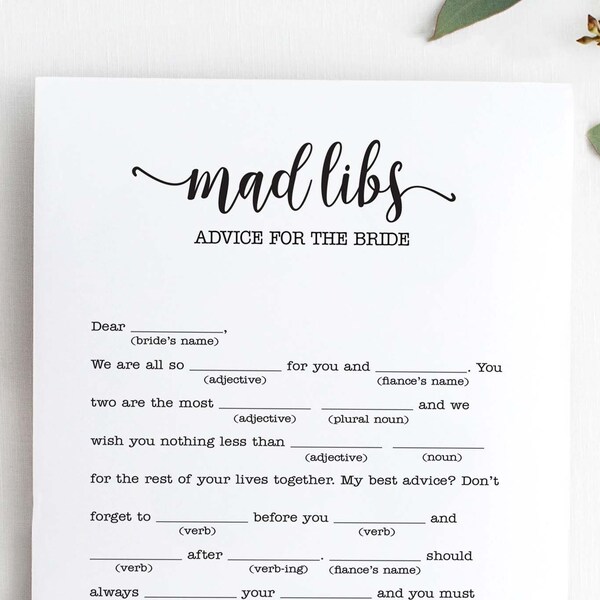 mad libs
ADVICE FOR THE BRIDE
Dear ____________,
(bride's name)
We are all so ____________ for you and ____________. You
(adjective) (fiance's name)
two are the most ____________ ____________ and we
(adjective) (plural noun)
wish you nothing less than ____________ ____________
(adjective) (noun)
for the rest of your lives together. My best advice? Don't
forget to ____________ before you ____________ and
(verb) (verb)
____________ after ____________. ____________ should
(verb) (verb-ing) (fiance's name)
always ____________ your ____________ and you must